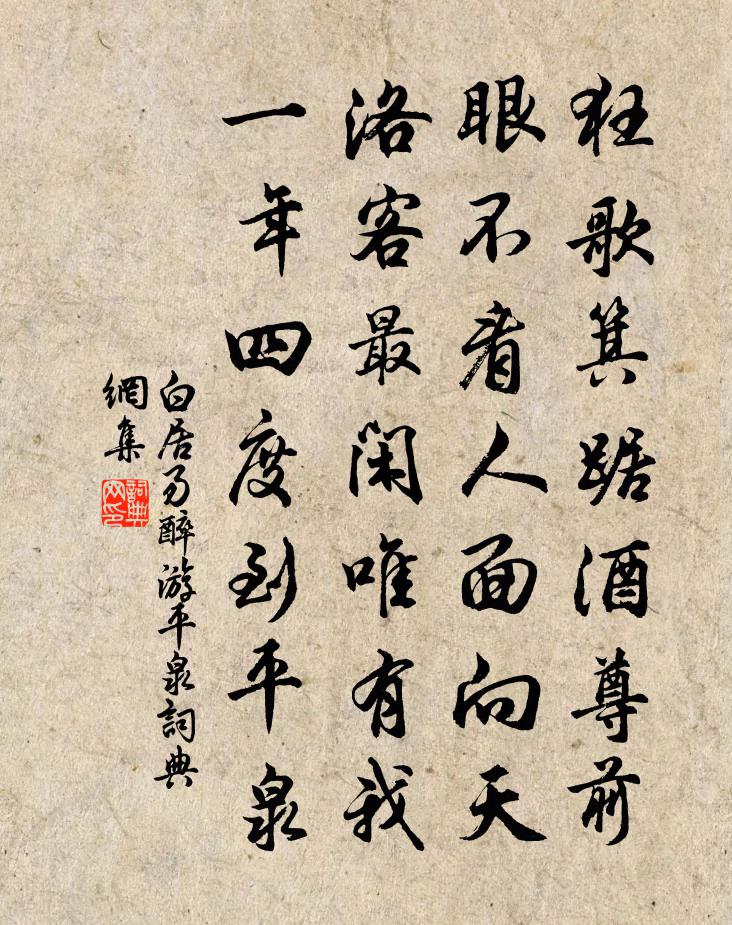 狂歌箕踞酒尊前
眼不看人面向天
洛客最閑唯有我
一年四度到平泉
白居易醉游平泉詞典
網集
詞典
网印